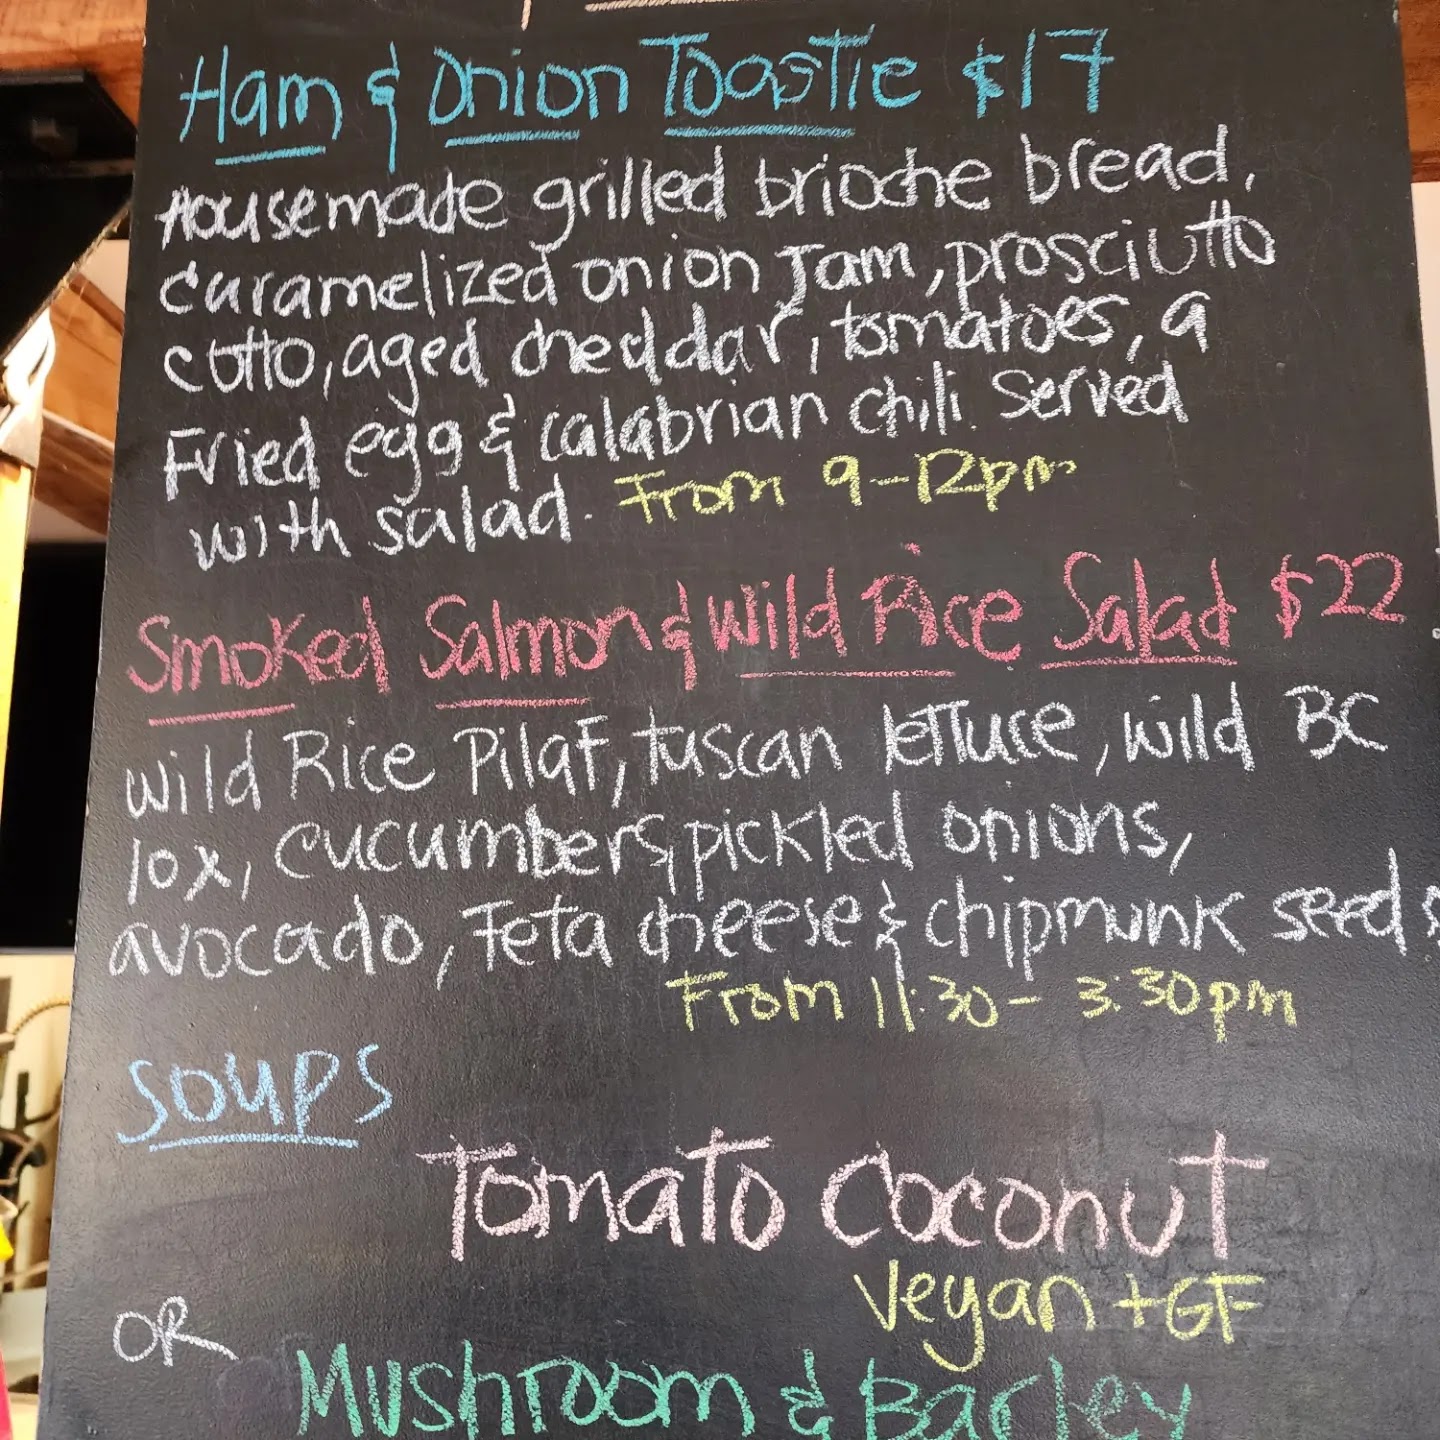 Ham & Onion Toastie $17
Housemade grilled brioche bread,
caramelized onion jam, prosciutto
cotto, aged cheddar, tomatoes, a
Fried egg & calabrian chili. Served
with salad. From 9-12pm
Smoked Salmon & Wild Rice Salad $22
Wild Rice Pilaf, tuscan lettuce, wild BC
lox, cucumbers, pickled onions,
avocado, Feta cheese & chipmunk seeds
From 11:30 - 3:30pm
SOUPS
Tomato Coconut
Vegan + GF
OR
Mushroom & Barley